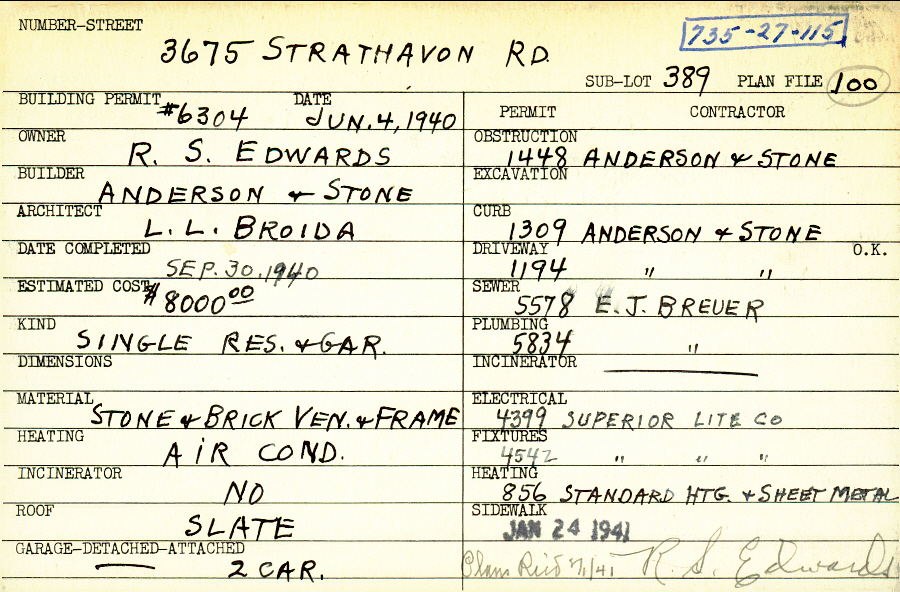 NUMBER-STREET
3675 STRATHAVON RD.
735-27-115
SUB-LOT 389 PLAN FILE 100
BUILDING PERMIT #6304 DATE JUN. 4, 1940
OWNER R. S. EDWARDS
BUILDER ANDERSON & STONE
ARCHITECT L. L. BROIDA
DATE COMPLETED SEP. 30, 1940
ESTIMATED COST $8000 00
KIND SINGLE RES. & GAR.
DIMENSIONS
MATERIAL STONE & BRICK VEN. & FRAME
HEATING AIR COND.
INCINERATOR NO
ROOF SLATE
GARAGE-DETACHED-ATTACHED
2 CAR.
PERMIT CONTRACTOR
OBSTRUCTION 1448 ANDERSON & STONE
EXCAVATION
CURB 1309 ANDERSON & STONE
DRIVEWAY 1194 " " O.K.
SEWER 5578 E. J. BREUER
PLUMBING 5834 "
INCINERATOR
ELECTRICAL 4399 SUPERIOR LITE CO
FIXTURES 4542 " " "
HEATING 856 STANDARD HTG. & SHEET METAL
SIDEWALK JAN 24 1941
R. S. Edwards